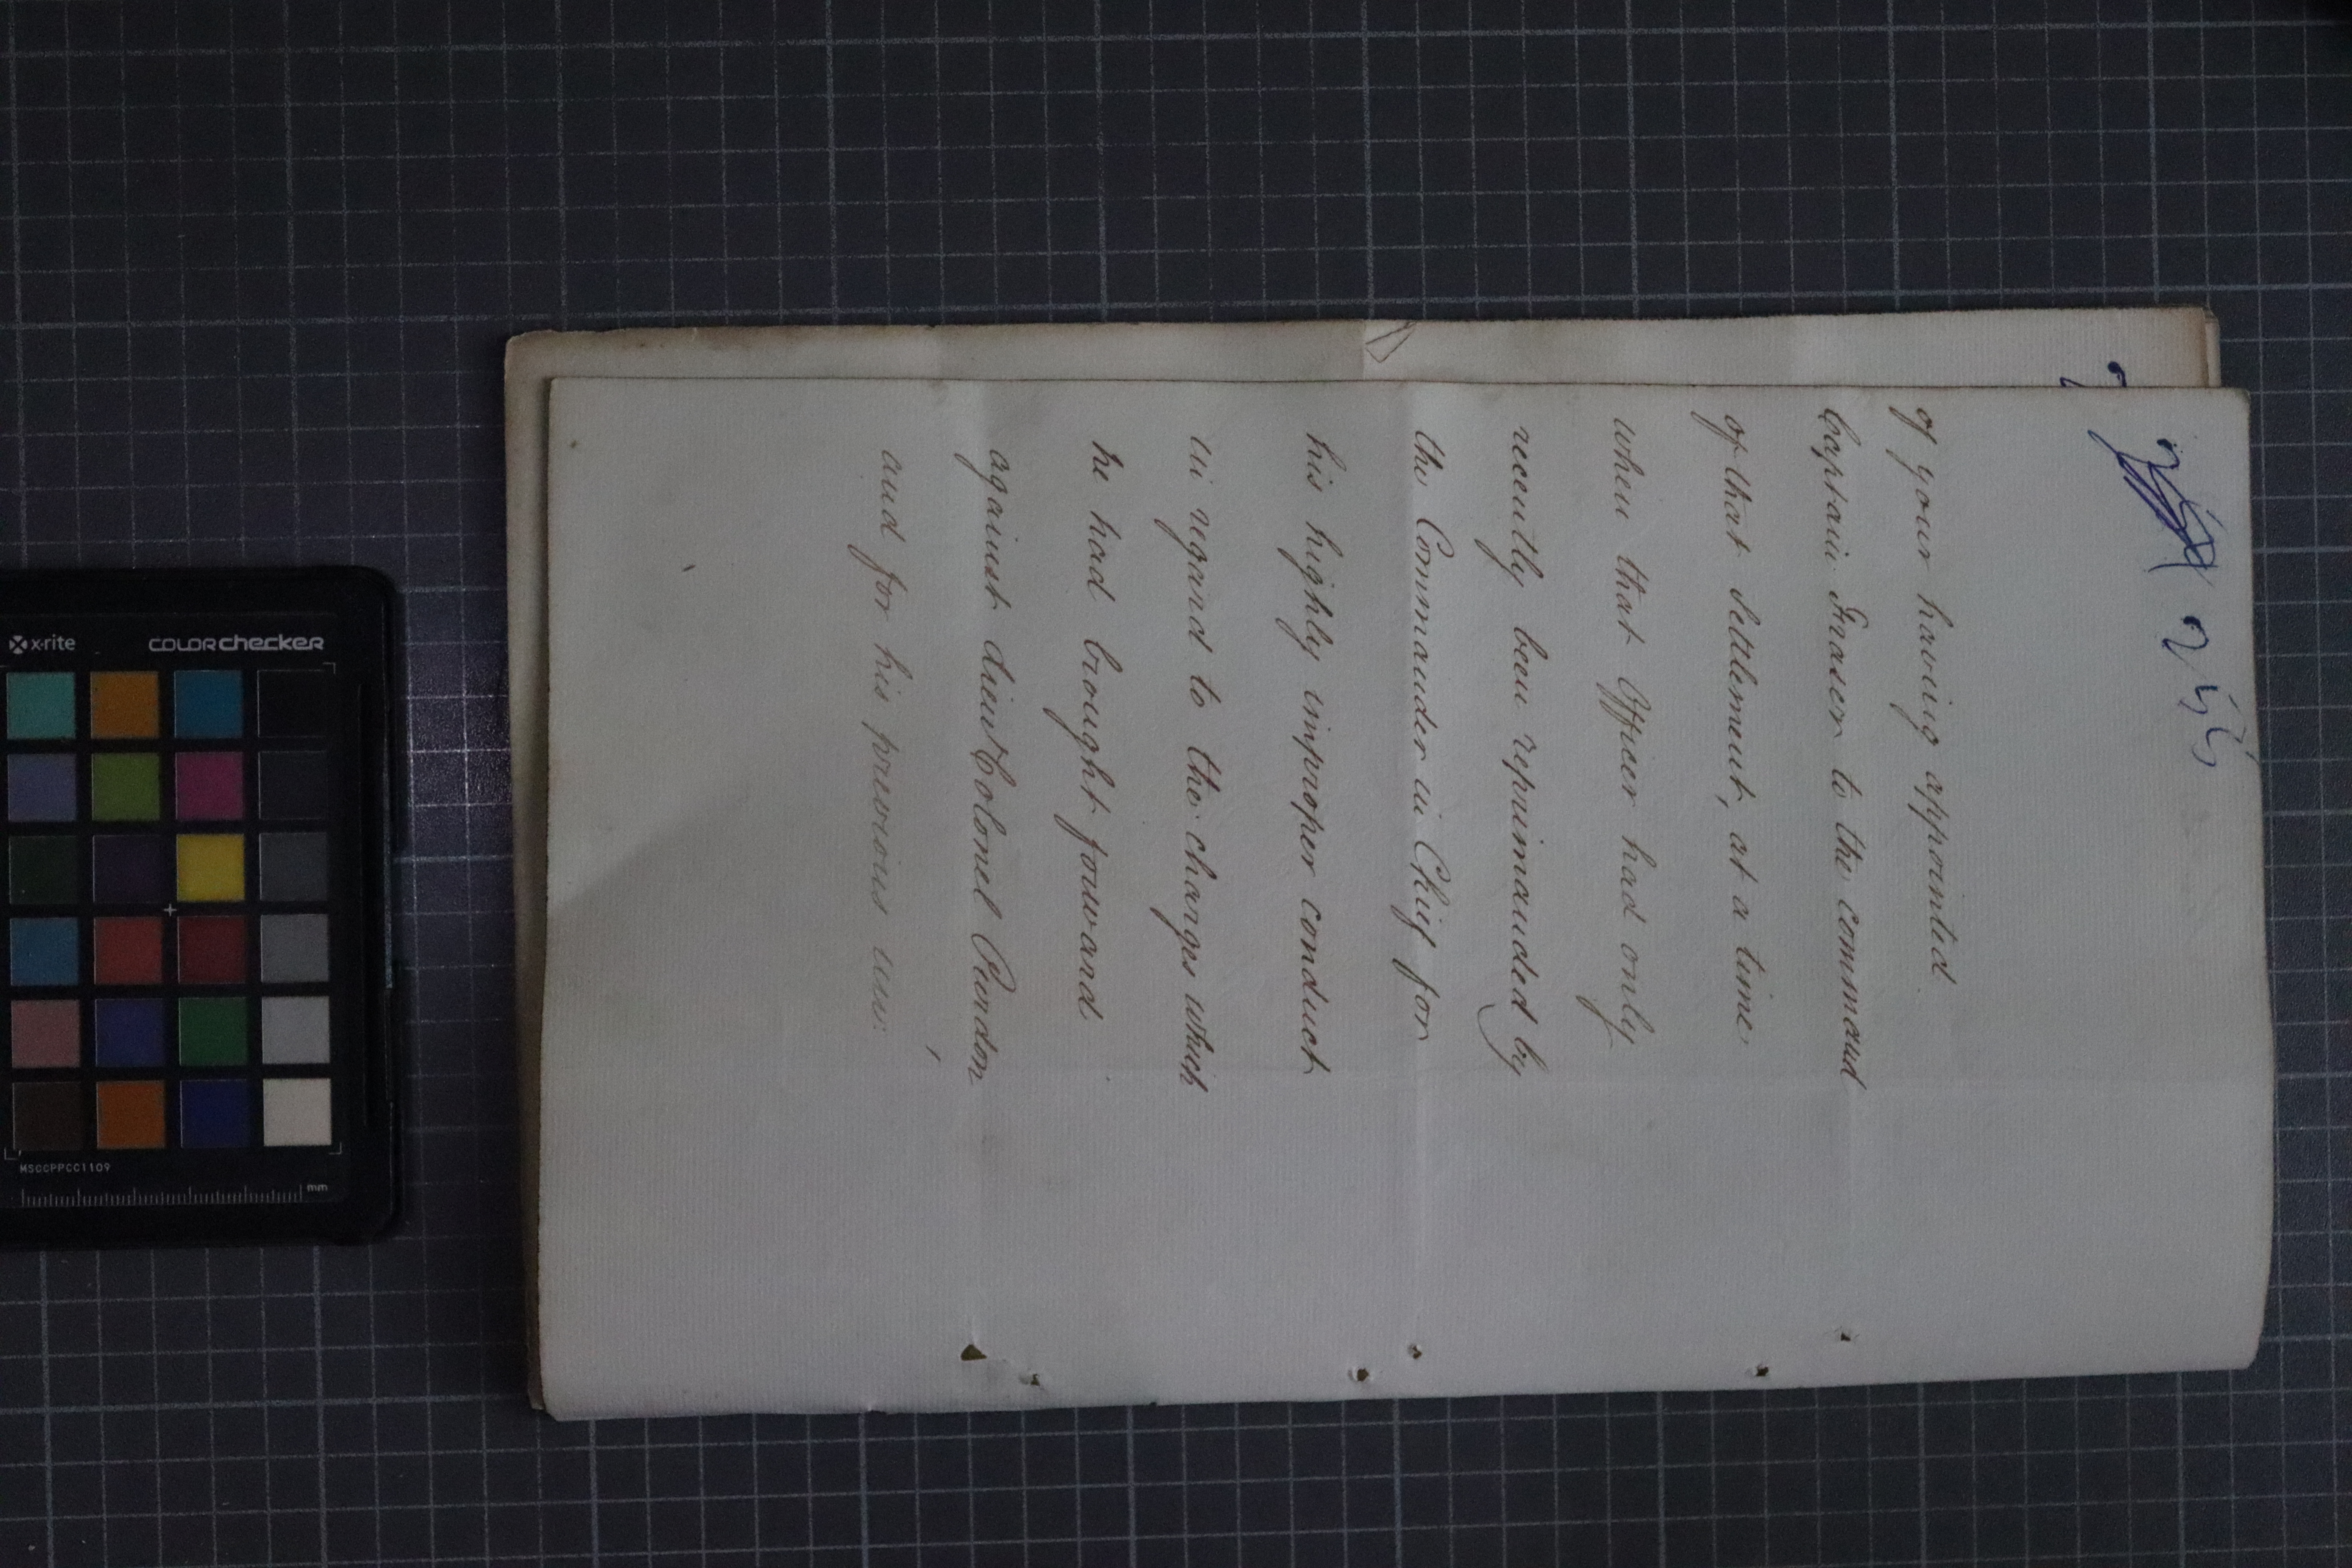 of your having appointed
Captain Fraser to the command
of that Settlement, at a time,
when that Officer had only
recently been reprimanded by
the Commander in Chief for
his highly improper conduct
in regard to the charges which
he had brought forward
against Lieut Colonel Purdon
and for his previous
x-rite
COLORchecker
MSCCPPCC1109
mm